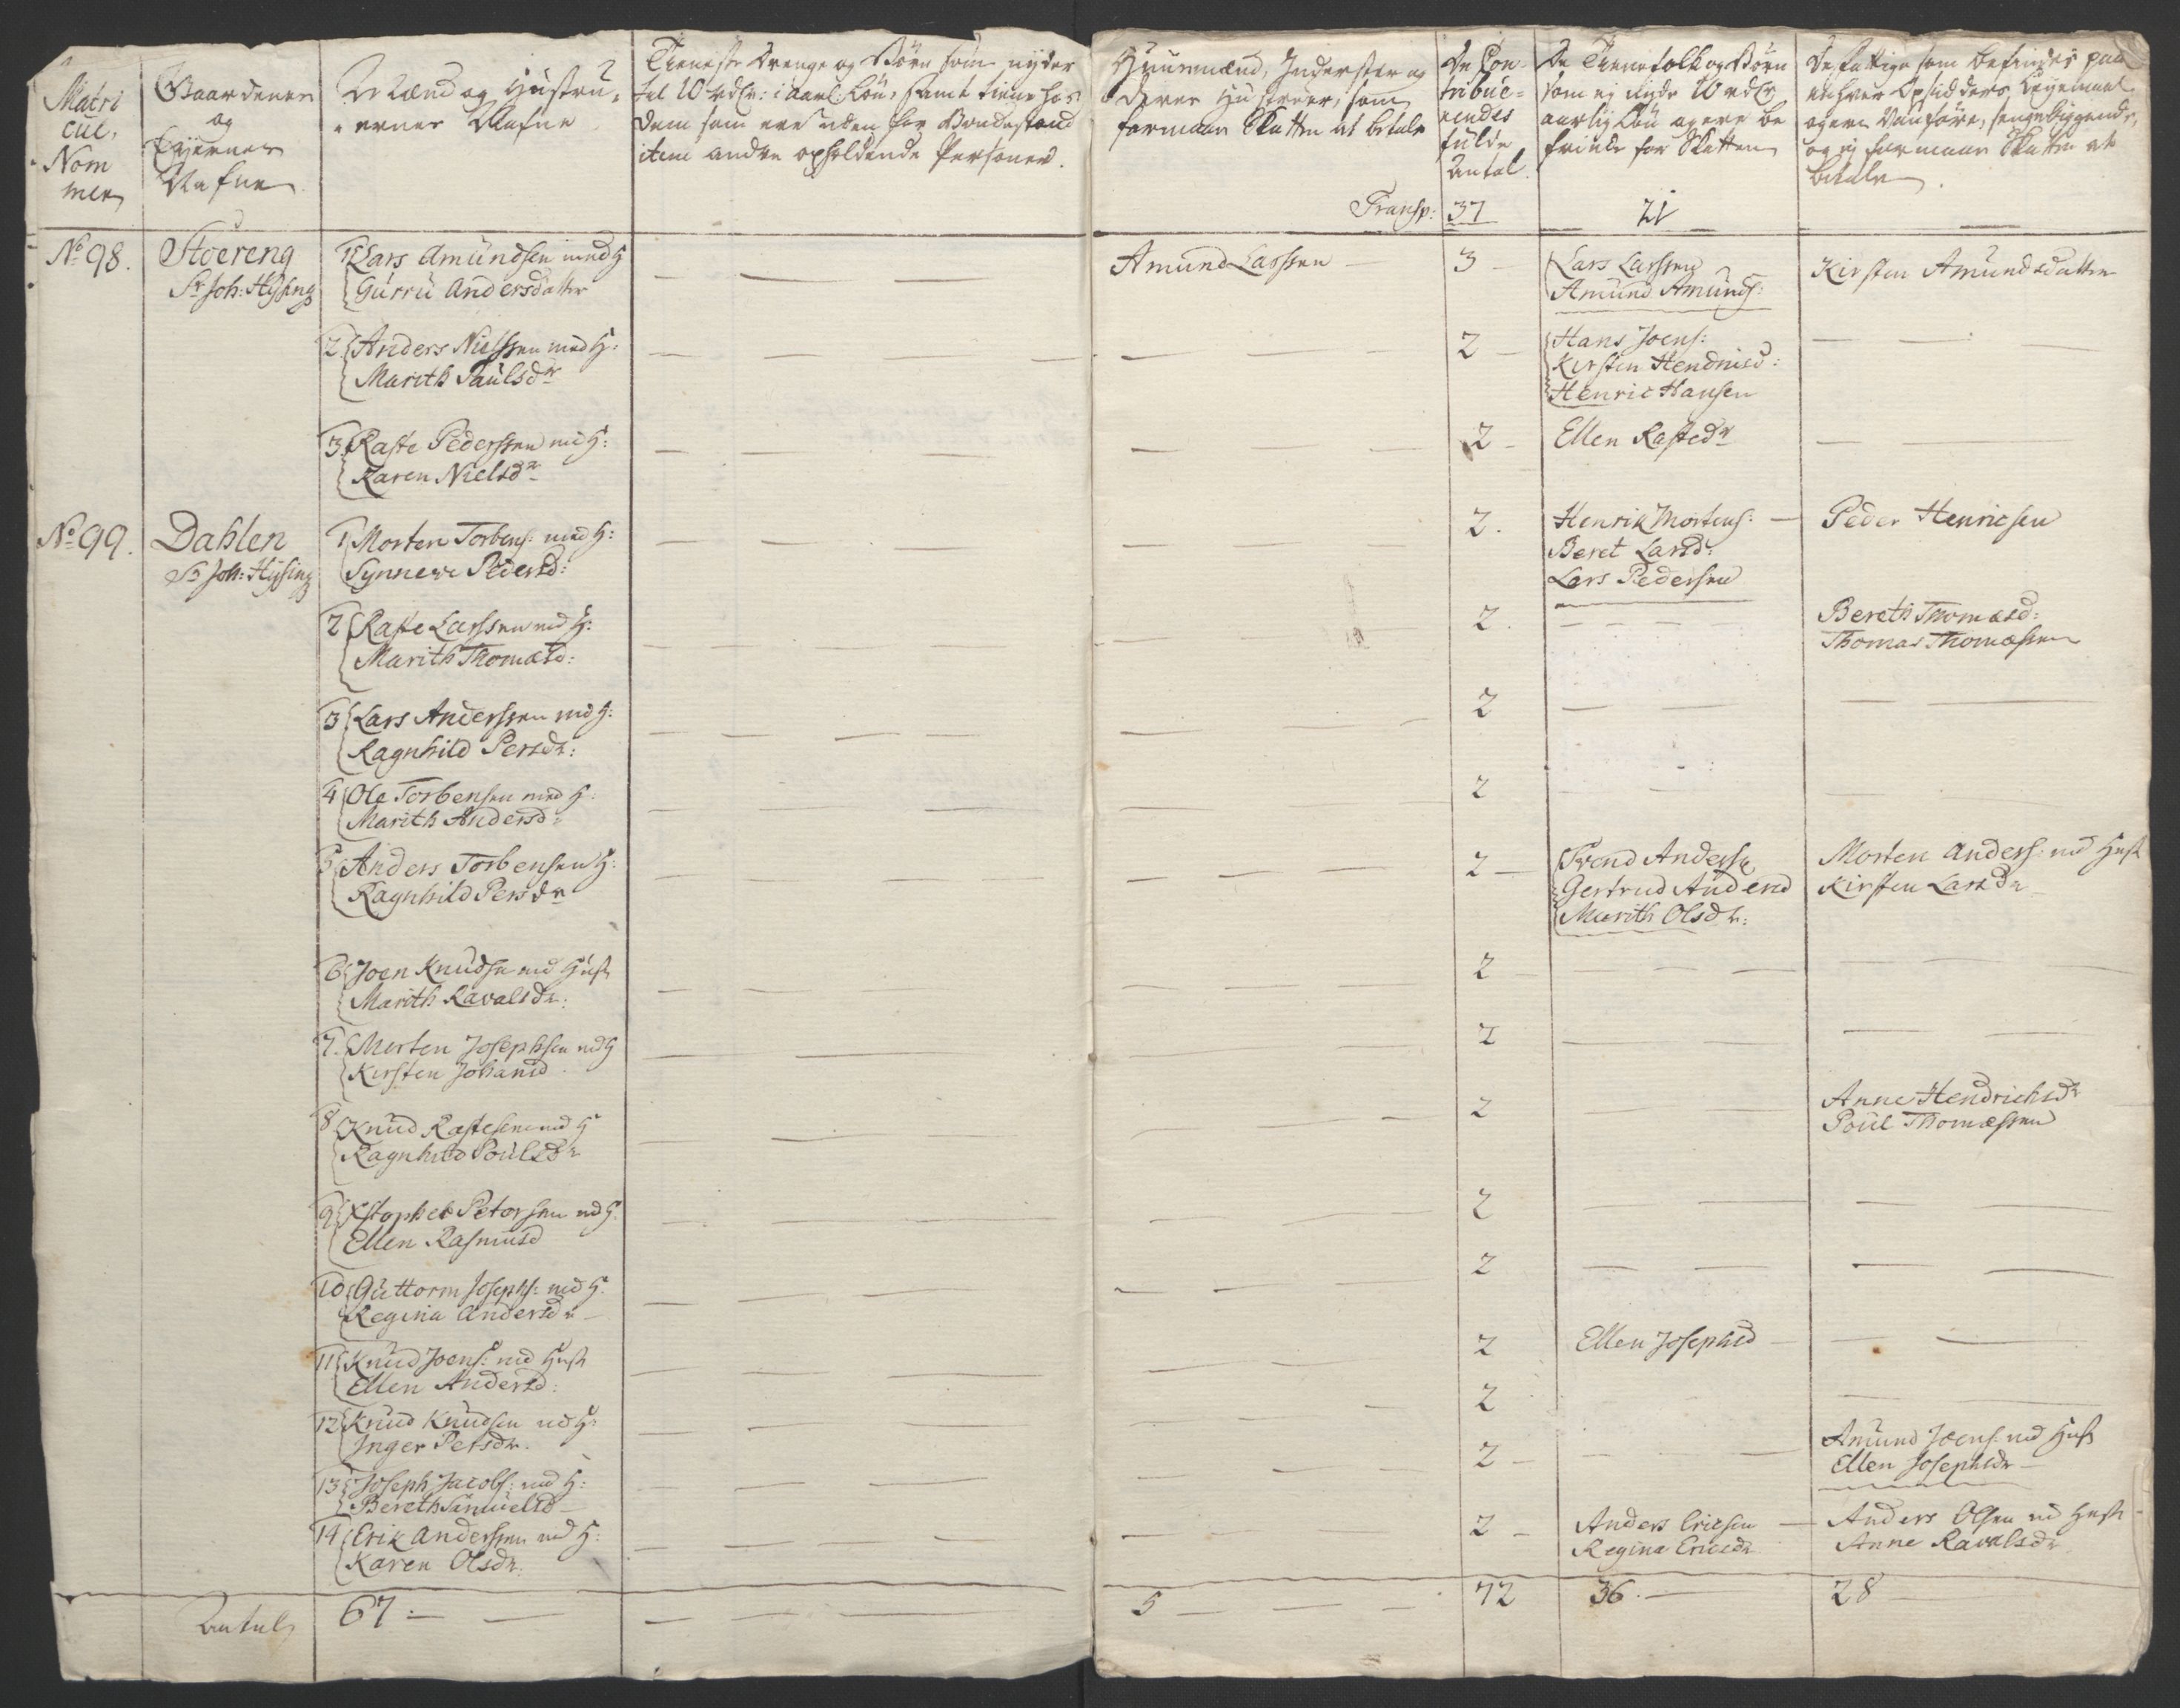 Matri
cul,
Nom
mer
Gaardenes
og
Eyernes
Nafne
Mænd og Hustru,
ernes Nafne
Tieneste Drenge og Børn som nyder
til 10 rdlr: i aarl: Løn, samt tiener hos
dem som ere uden for Bondestand
item andre opholdende Personer.
Huusmænd, Inderster og
deres Hustruer, som
formaar Skatten at betale
De Con-
tribue-
rendes
fulde
Antal
De Tienefolk og Børn
som ej nyde 10 rdlr
aarlig Løn og ere be
friede for Skatten
De fattige som befindes paa
enhver Opsidders
og ere Vanføre, sengeliggende,
og ej formaar Skatten at
betale.
Transp: 37
21
No 98.
Stoereng
Sr Joh: Hysing
1 Lars Amundsen med H
Gurru Andersdatter
Amund Larssen
3
Lars Larssen
Amund Amunds:
Kirsten Amundsdatter
2 Anders Nielssen med H:
Marith Paulsdr
2
Hans Joens:
Kirsten Hendricsd:
Henric Hansen
3 Raste Pederssen md H:
Karen Nielsdr
2
Ellen Rastedr
No 99.
Dahlen
Sr Joh: Hysing
1 Morten Torbens: med H:
Synnewe Pedersd:
2.
Henrik Mortens:
Beret Larsd:
Lars Pedersen
Peder Henricsen
2 Raste Larssen md H:
Marith Thomasd:
2.
Bereth Thomasd:
Thomas Thomassen
3 Lars Anderssen md H:
Ragnhild Persdr:
2
4 Ole Torbensen med H:
Marith Andersd:
2
5 Anders Torbensen H:
Ragnhild Persdr
2
Trend Anders
Gertrud Andersd
Marith Olsdr:
Morten Anders: md Hust
Kirsten Larsdr
6 Joen Knudsen md Hust
Marith Ravalsdr:
2
7. Morten Josephsen md H
Kirsten Johansd
2
8 Knud Rastesen md H
Ragnhild Poulsdr
2
Anne Hendrichsdr
Poul Thomassen
9 Xstopher Petersen md H:
Ellen Rasmusd
2
10 Guttorm Josephs: md H:
Regina Andersdr
2
11 Knud Joens: md Hust
Ellen Andersd:
2
Ellen Josephsd
12 Knud Knudsen md H:
Inger Petsdr.
2
13 Joseph Jacobs: md H:
Bereth Samuelsd
2
Amund Joens: md Hust
Ellen Josephsdr
14 Erik Anderssen md H:
Karen Olsdr.
2
Anders Ericsen
Regina Ericsdr
Anders Olsen md Hust
Anne Ravalsdr
Antal
67
5
72
36
28